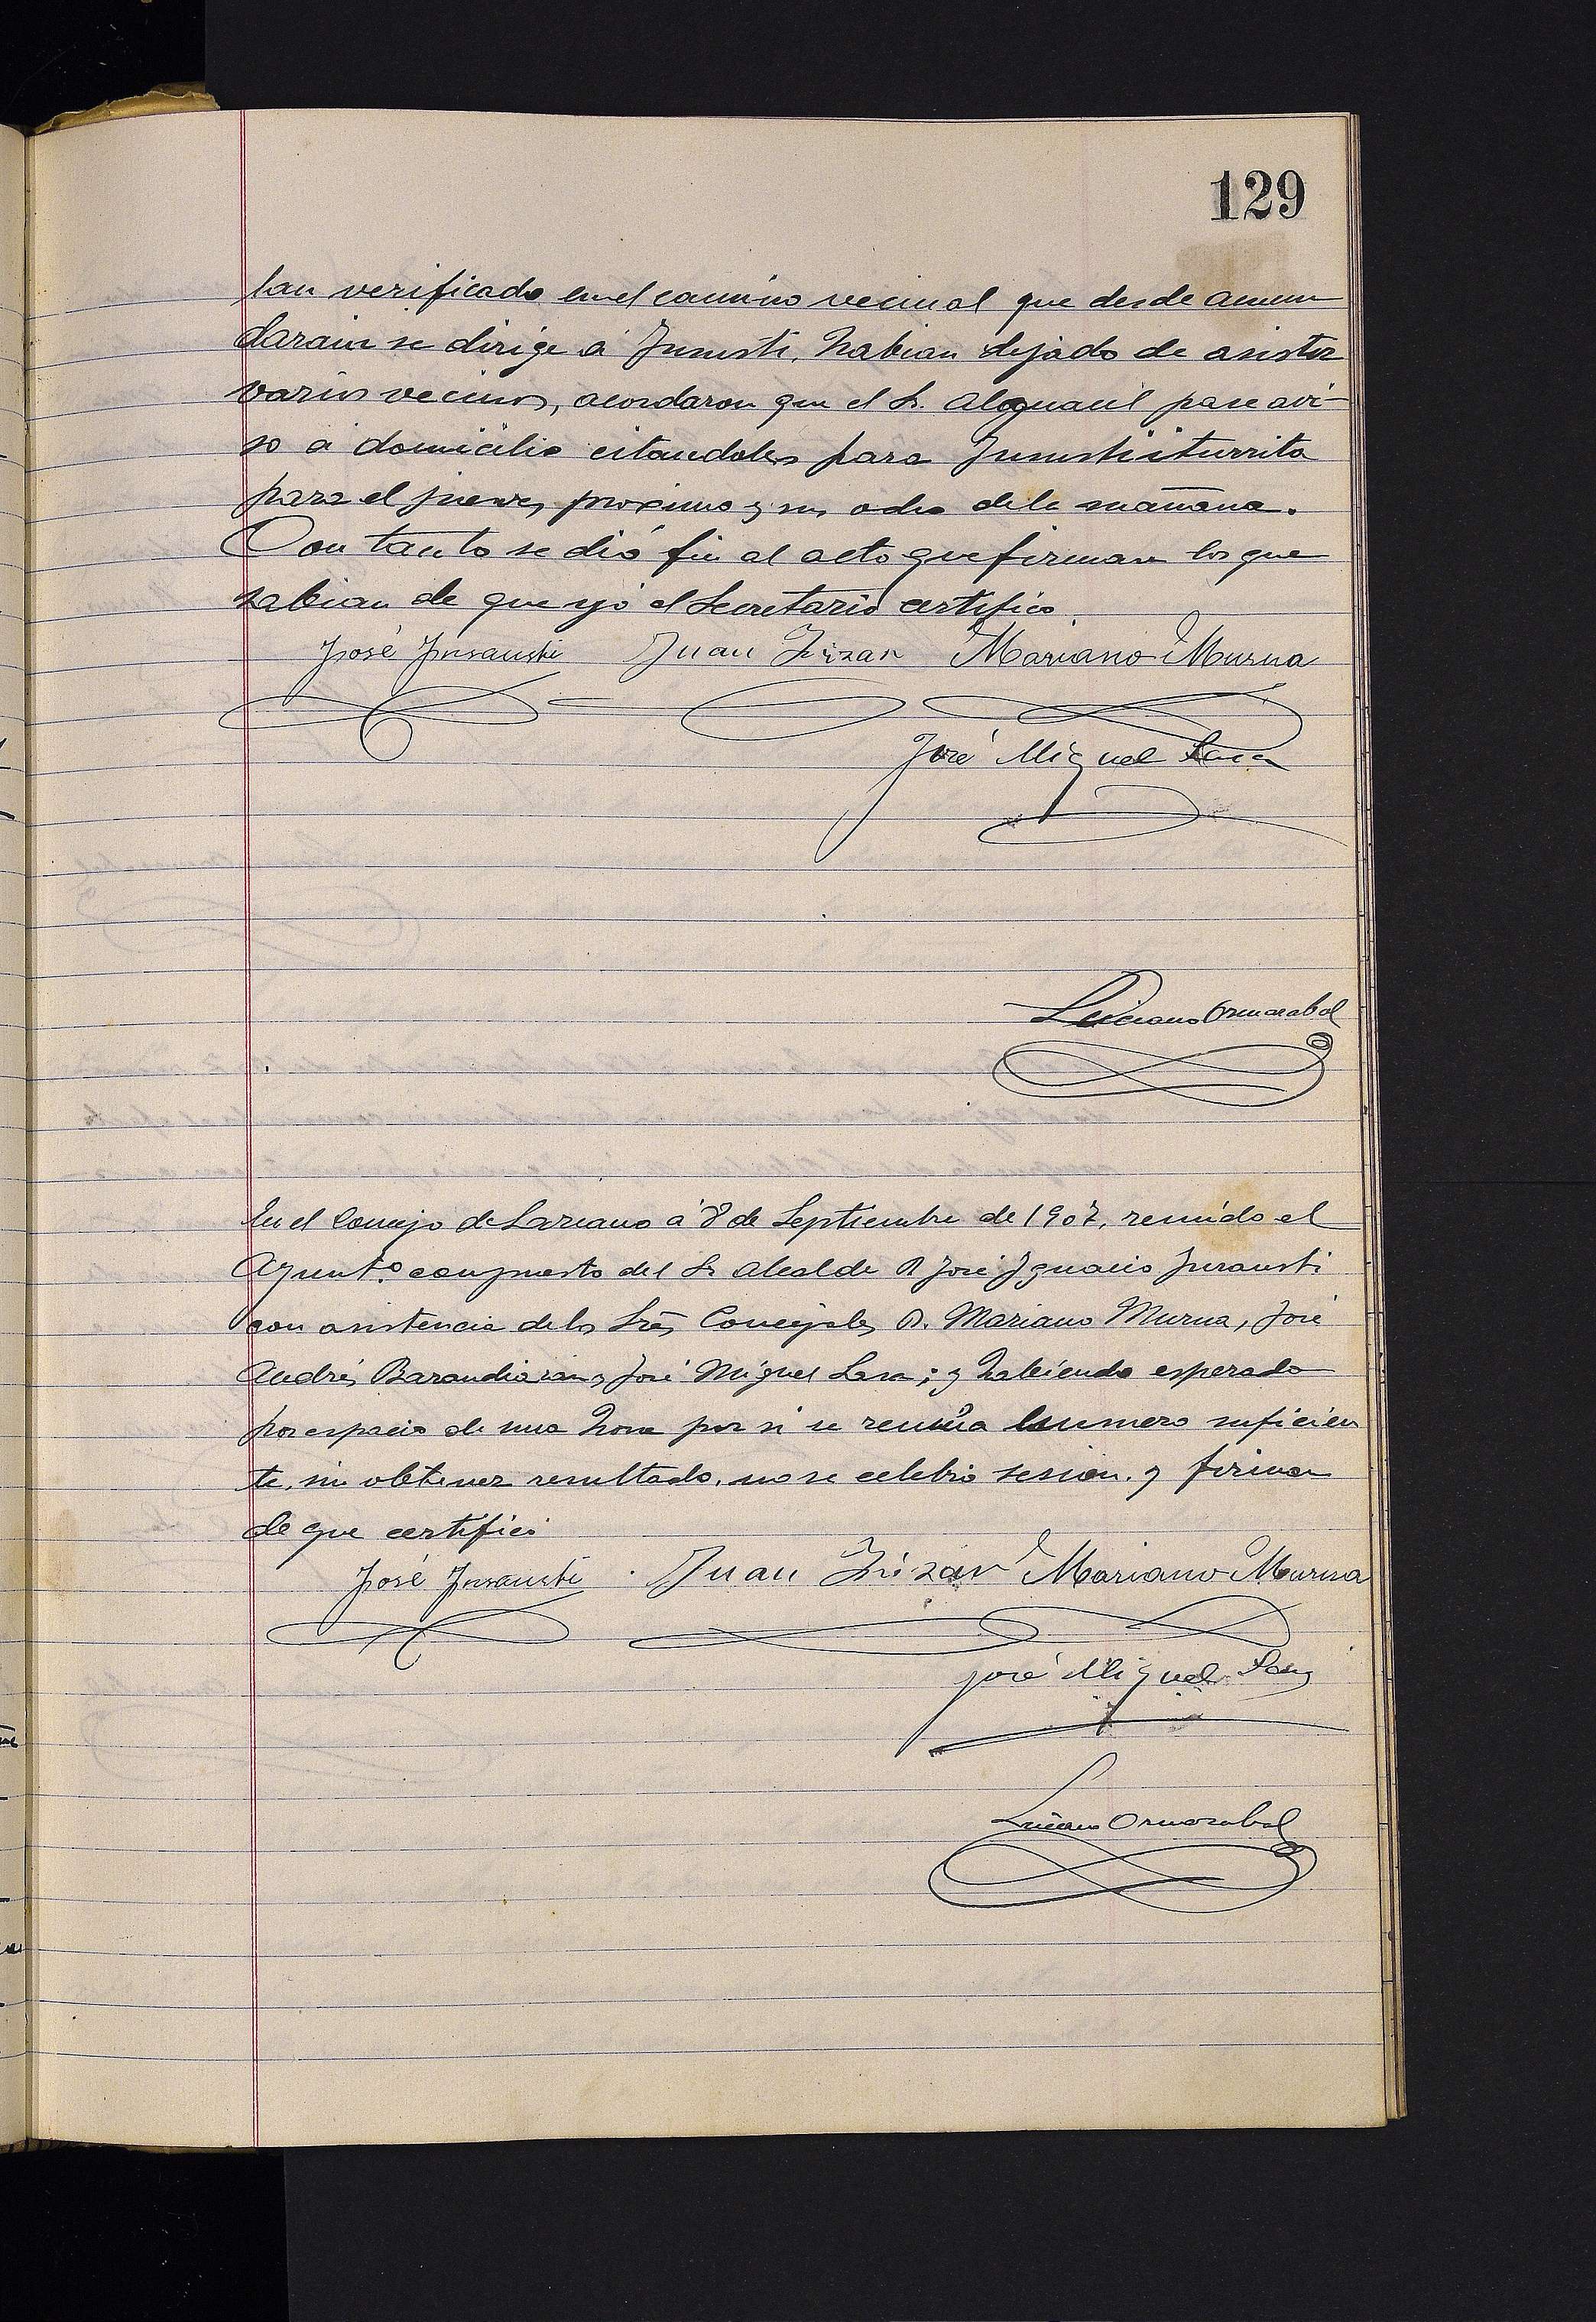 129
han verificado en el camino vecinal que desde amun
darain se dirige á Insusti, habian dejado de asistir
varios vecinos, acordaron que el Sr. Alguacil pase avi-
so á domicilio citandoles para Insustiiturrita
para el jueves proximo y sus ocho de la mañana.
Con tanto se dió fin al acto que firman los que
sabian de que yó el Secretario certifico.
José Insausti Juan Irizar Mariano Murua
José Miguel Lasa
Luciano Ormazabal
En el Concejo de Lazcano á 8 de Septiembre de 1907, reunido el
Ayunt.º compuesto del Sr Alcalde D José Ignacio Insausti
con asistencia de los Srs Concejales D. Mariano Murua, José
Andrés Barandiaran y José Miguel Lasa; y habiendo esperado
por espacio de una hora por si se reunia numero suficien
te, sin obtener resultado, no se celebró sesion. y firman
de que certifico
José Insausti Juan Irizar Mariano Murua
José Miguel Lasa
Luciano Ormazabal